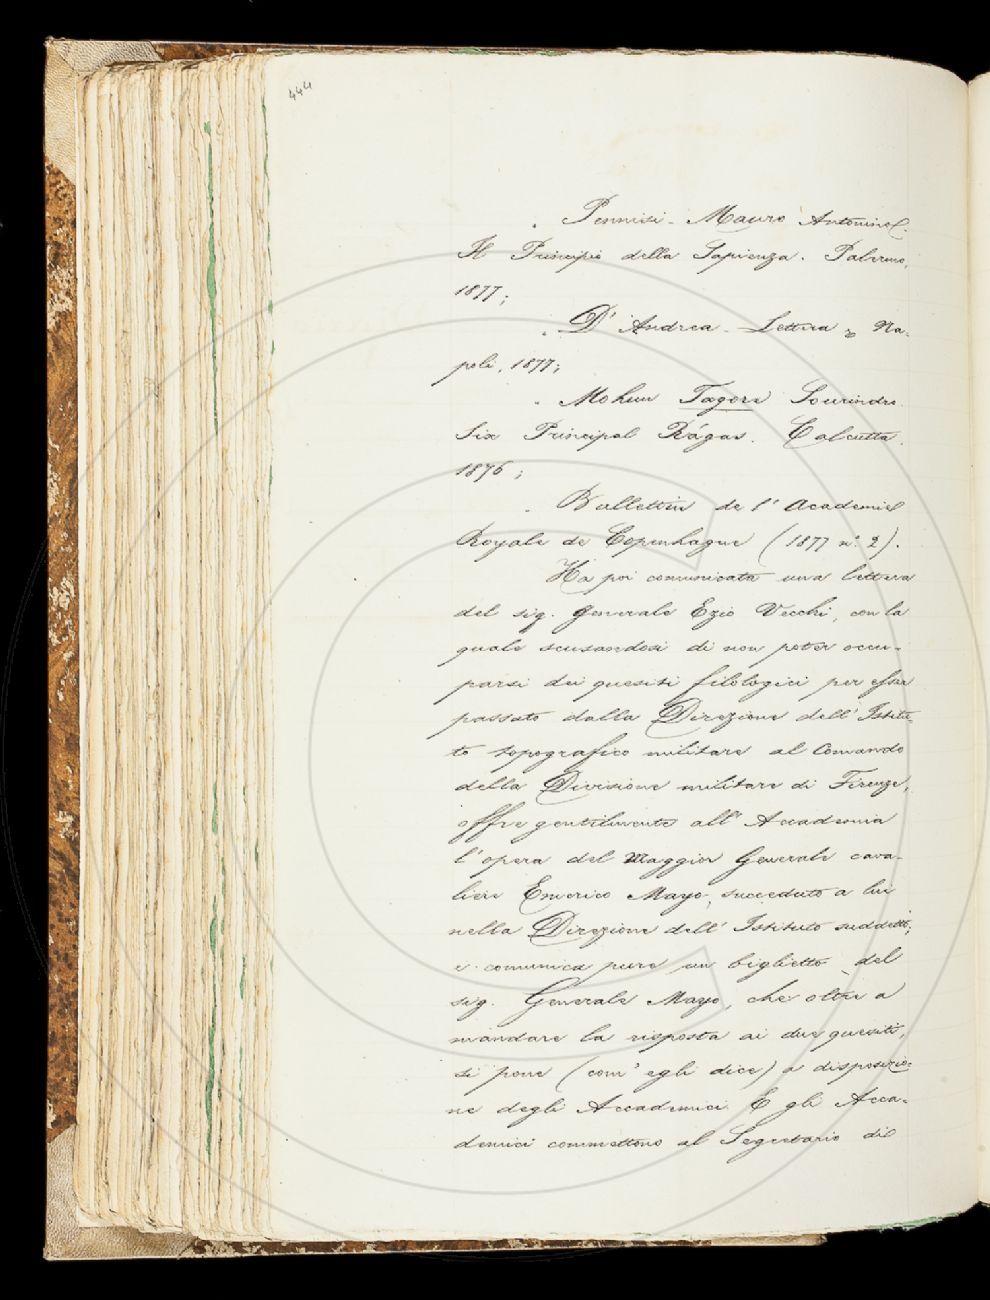 444
. Pennisi-Mauro Antonino.
Il Principio della Sapienza. Palermo,
1877;
. D'Andrea - Lettura - Na-
poli, 1877;
. Mohun Tagore Sourindro.
Six Principal Rágas. Calcutta.
1876;
. Bullettin de l'Academie
Royale de Copenhague (1877 n.º 2).
Ha poi comunicata una lettera
del sig. generale Ezio Vecchi, con la
quale scusandosi di non poter occu-
parsi dei quesiti filologici per esser
passato dalla Direzione dell'Istitu-
to topografico militare al Comando
della Divisione militare di Firenze,
offre gentilmente all'Accademia
l'opera del Maggior Generale cava-
liere Emerico Mayo, succeduto a lui
nella Direzione dell'Istituto suddetto;
e comunica pure un biglietto del
sig. Generale Mayo, che oltre a
mandare la risposta ai due quesiti,
si pone (com'egli dice) a disposizio-
ne degli Accademici. E gli Acca-
demici commettono al Segretario di